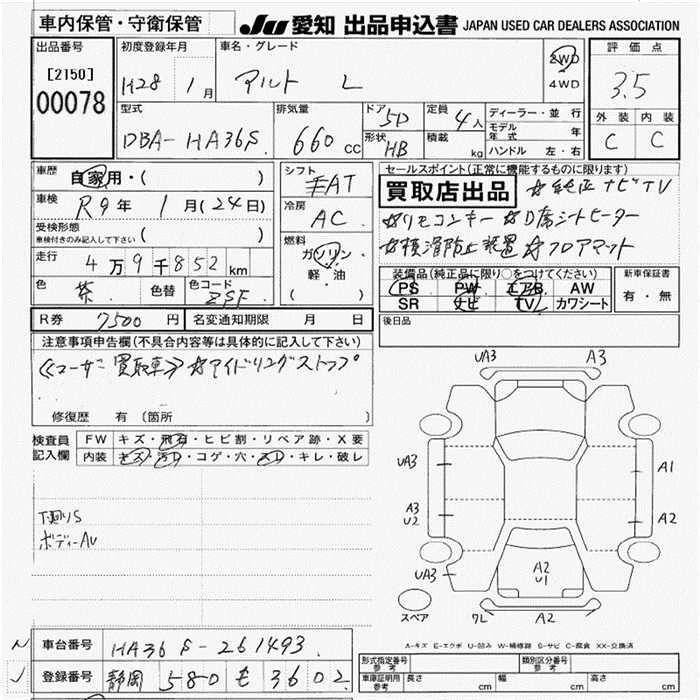 車内保管・守衛保管 JU 愛知 出品申込書 JAPAN USED CAR DEALERS ASSOCIATION
出品番号 初度登録年月 車名・グレード 評価点
[2150] H28 1月 アルト L 2WD 3.5
00078 4WD
型式 排気量 ドア 5D 定員 4人 ディーラー・並行 外装 内装
モデル年式 年
DBA-HA36S 660cc 形状 HB 積載 kg ハンドル 左・右 C C
車歴 自家用・( ) シフト AT セールスポイント(正常に機能するものに限ります)
買取店出品 ☆純正ナビTV
車検 R9年 1月(24日) 冷房 AC ☆リモコンキー ☆D席シートヒーター
受検形態
車検付きのみ記入して下さい ( ) 燃料 ガソリン・ ☆横滑防止装置 ☆フロアマット
走行 4万9千852km 軽油 装備品(純正品に限り○をつけてください) 新車保証書
色 茶 色替 色コード ZSF ( ) PS PW エアB AW 有・無
SR ナビ TV カワシート
R券 7500円 名変通知期限 月 日 後日品
注意事項申告欄(不具合内容等は具体的に記入して下さい)
≪ユーザー買取車≫ ☆アイドリングストップ
修復歴 有 〔箇所
検査員 FW キズ・飛石・ヒビ割・リペア跡・X要
記入欄 内装 キズ・汚れ・コゲ・穴・スレ・キレ・破レ
下廻りS
ボディーAU
UA3 A3
UA3 A1
A3
U2 A2
A2
U1
UA3
スペア WL A2
A-キズ E-エクボ U-凹み W-補修跡 S-サビ C-腐食 XX-交換済
車台番号 HA36S-261493
登録番号 静岡 580 も 3602
形式指定番号 参考 類別区分番号 参考
車庫証明用 参考 長さ cm 幅 cm 高さ cm